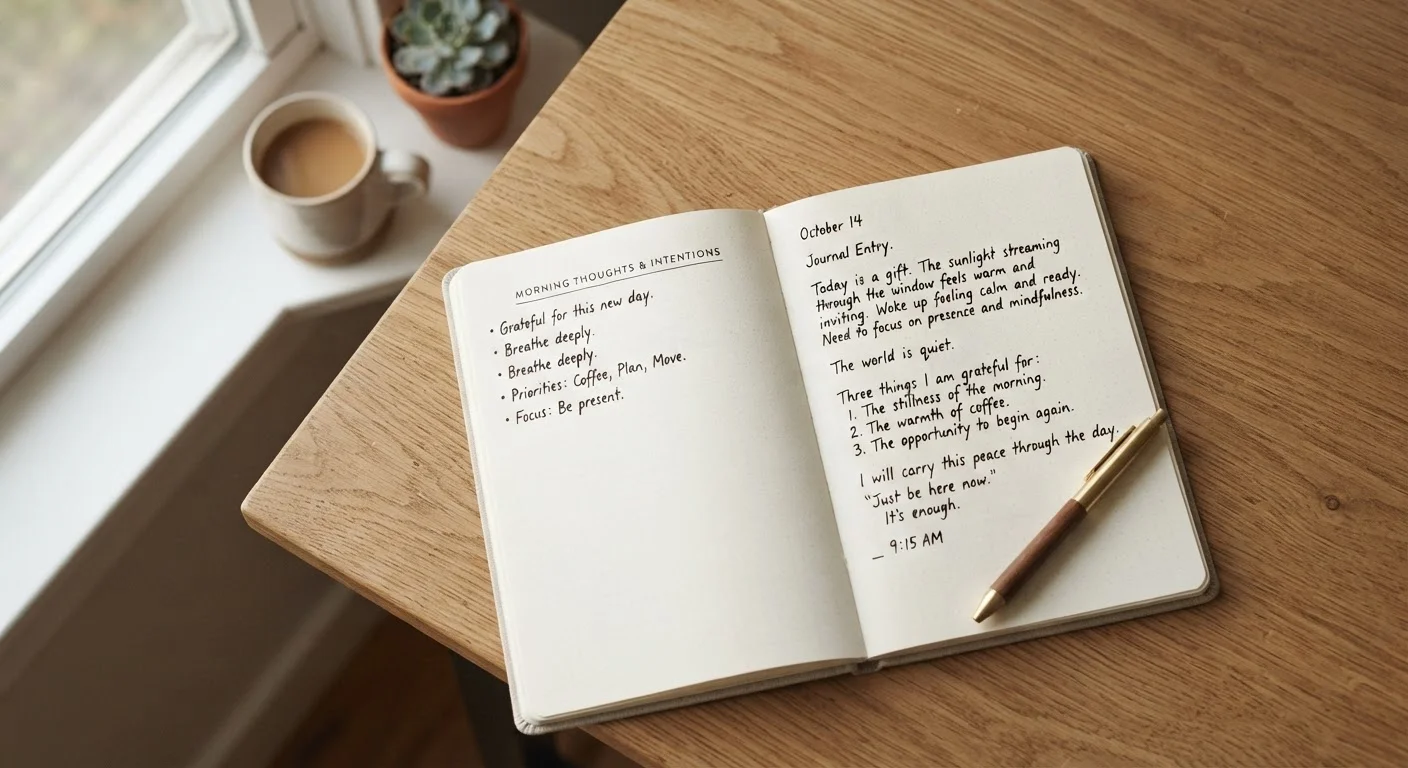 MORNING THOUGHTS & INTENTIONS
• Grateful for this new day.
• Breathe deeply.
• Breathe deeply.
• Priorities: Coffee, Plan, Move.
• Focus: Be present.
October 14
Journal Entry.
Today is a gift. The sunlight streaming
through the window feels warm and
inviting. Woke up feeling calm and ready.
Need to focus on presence and mindfulness.
The world is quiet.
Three things I am grateful for:
1. The stillness of the morning.
2. The warmth of coffee.
3. The opportunity to begin again.
I will carry this peace through the day.
"Just be here now."
It's enough.
— 9:15 AM